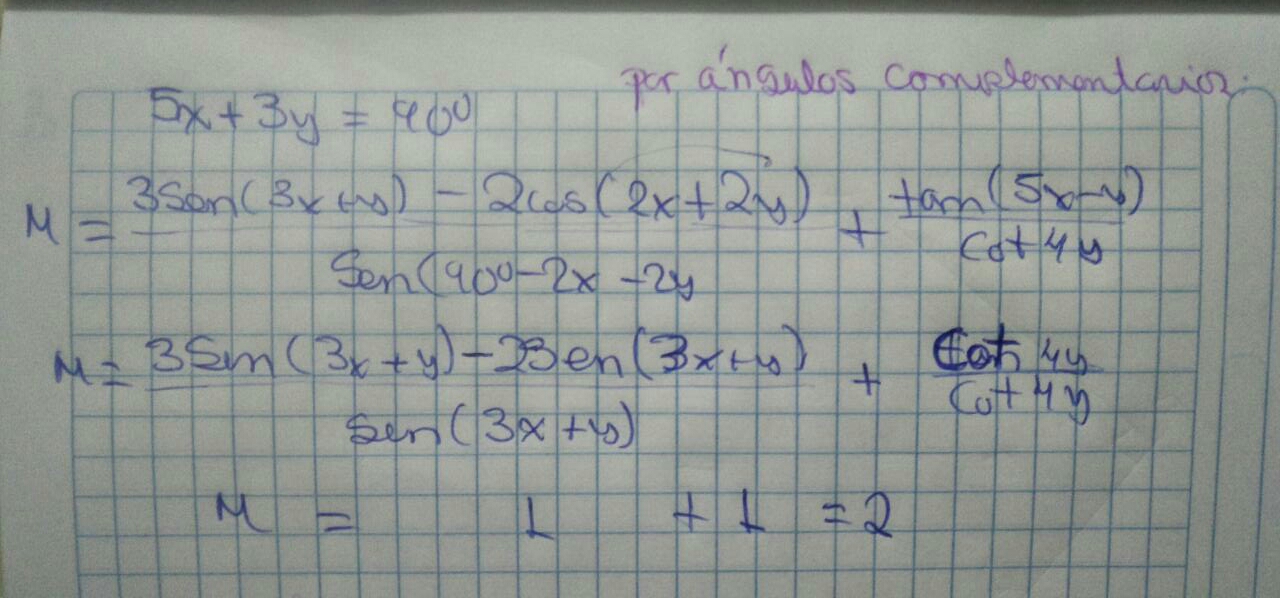 por ángulos complementarios.
5x + 3y = 90°
M = 3Sen(3x+y) - 2cos(2x+2y) / Sen(90°-2x-2y + tan(5x-y) / Cot 4y
M = 3Sen(3x+y) - 2Sen(3x+y) / Sen(3x+y) + Cot 4y / Cot 4y
M = 1 + 1 = 2